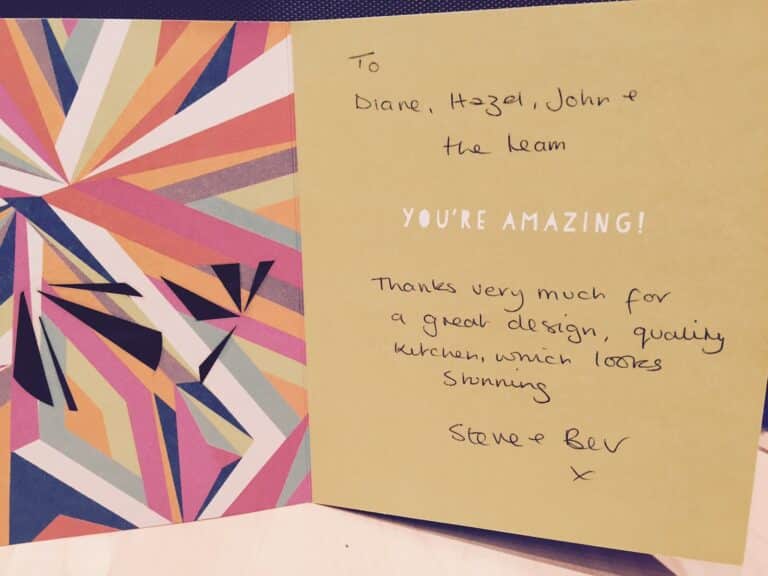 To
Diane, Hazel, John +
the team
YOU'RE AMAZING!
Thanks very much for
a great design, quality
kitchen, which looks
Stunning
Steve + Bev
x